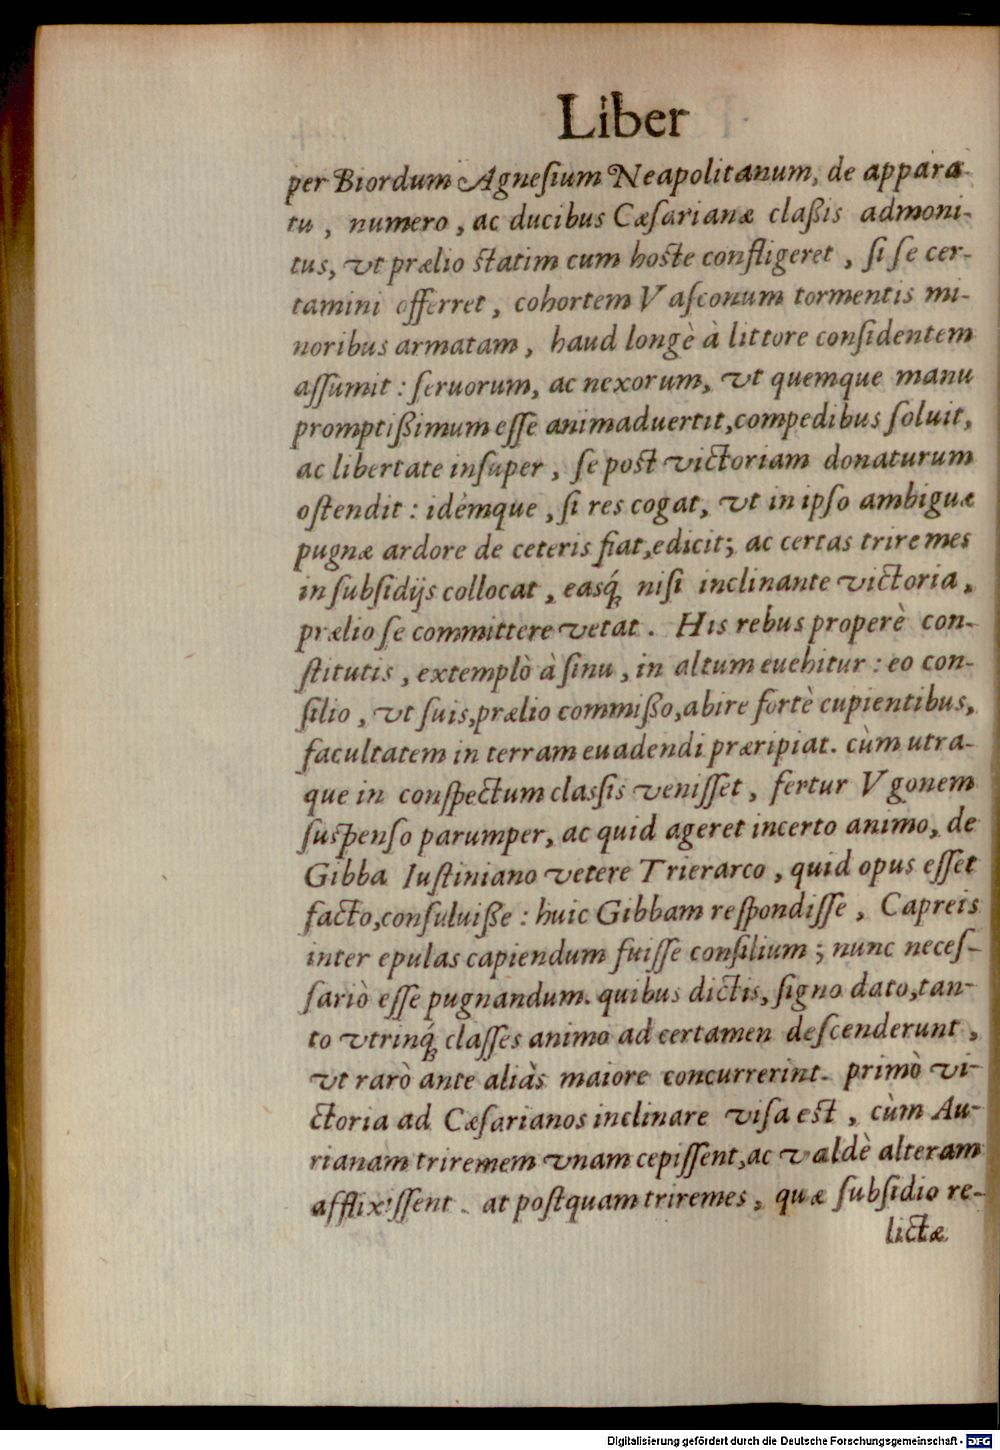 Liber
per Biordum Agnesium Neapolitanum, de appara-
tu, numero, ac ducibus Cæsarianæ claßis admoni-
tus, vt prælio statim cum hoste confligeret, si se cer-
tamini offerret, cohortem Vasconum tormentis mi-
noribus armatam, haud longè à littore considentem
assumit: seruorum, ac nexorum, vt quemque manu
promptißimum esse animaduertit, compedibus soluit,
ac libertate insuper, se post victoriam donaturum
ostendit: idémque, si res cogat, vt in ipso ambiguæ
pugnæ ardore de ceteris fiat, edicit; ac certas triremes
in subsidijs collocat, easq́; nisi inclinante victoria,
prælio se committere vetat. His rebus properè con-
stitutis, extemplò à sinu, in altum euehitur: eo con-
silio, vt suis, prælio commißo, abire fortè cupientibus,
facultatem in terram euadendi præripiat. cùm utra-
que in conspectum classis venisset, fertur Vgonem
suspenso parumper, ac quid ageret incerto animo, de
Gibba Iustiniano vetere Trierarco, quid opus esset
facto, consuluiße: huic Gibbam respondisse, Capreis
inter epulas capiendum fuisse consilium; nunc neces-
sariò esse pugnandum. quibus dictis, signo dato, tan-
to vtrinq́; classes animo ad certamen descenderunt,
vt rarò ante aliàs maiore concurrerint. primò vi-
ctoria ad Cæsarianos inclinare visa est, cùm Au-
rianam triremem vnam cepissent, ac valdè alteram
afflixissent. at postquam triremes, quæ subsidio re-
lictæ
Digitalisierung gefördert durch die Deutsche Forschungsgemeinschaft - DFG